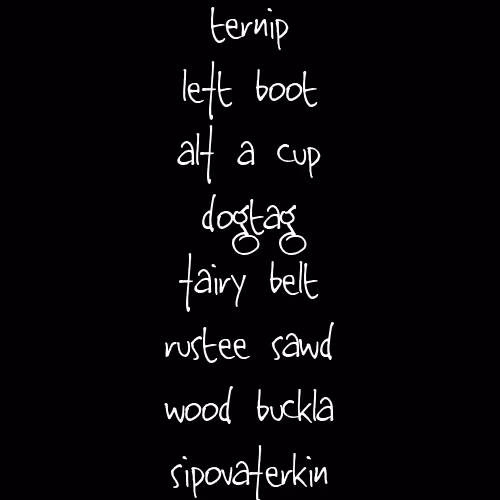 ternip
left boot
alf a cup
dogtag
fairy belt
rustee sawd
wood buckla
sipovaferkin